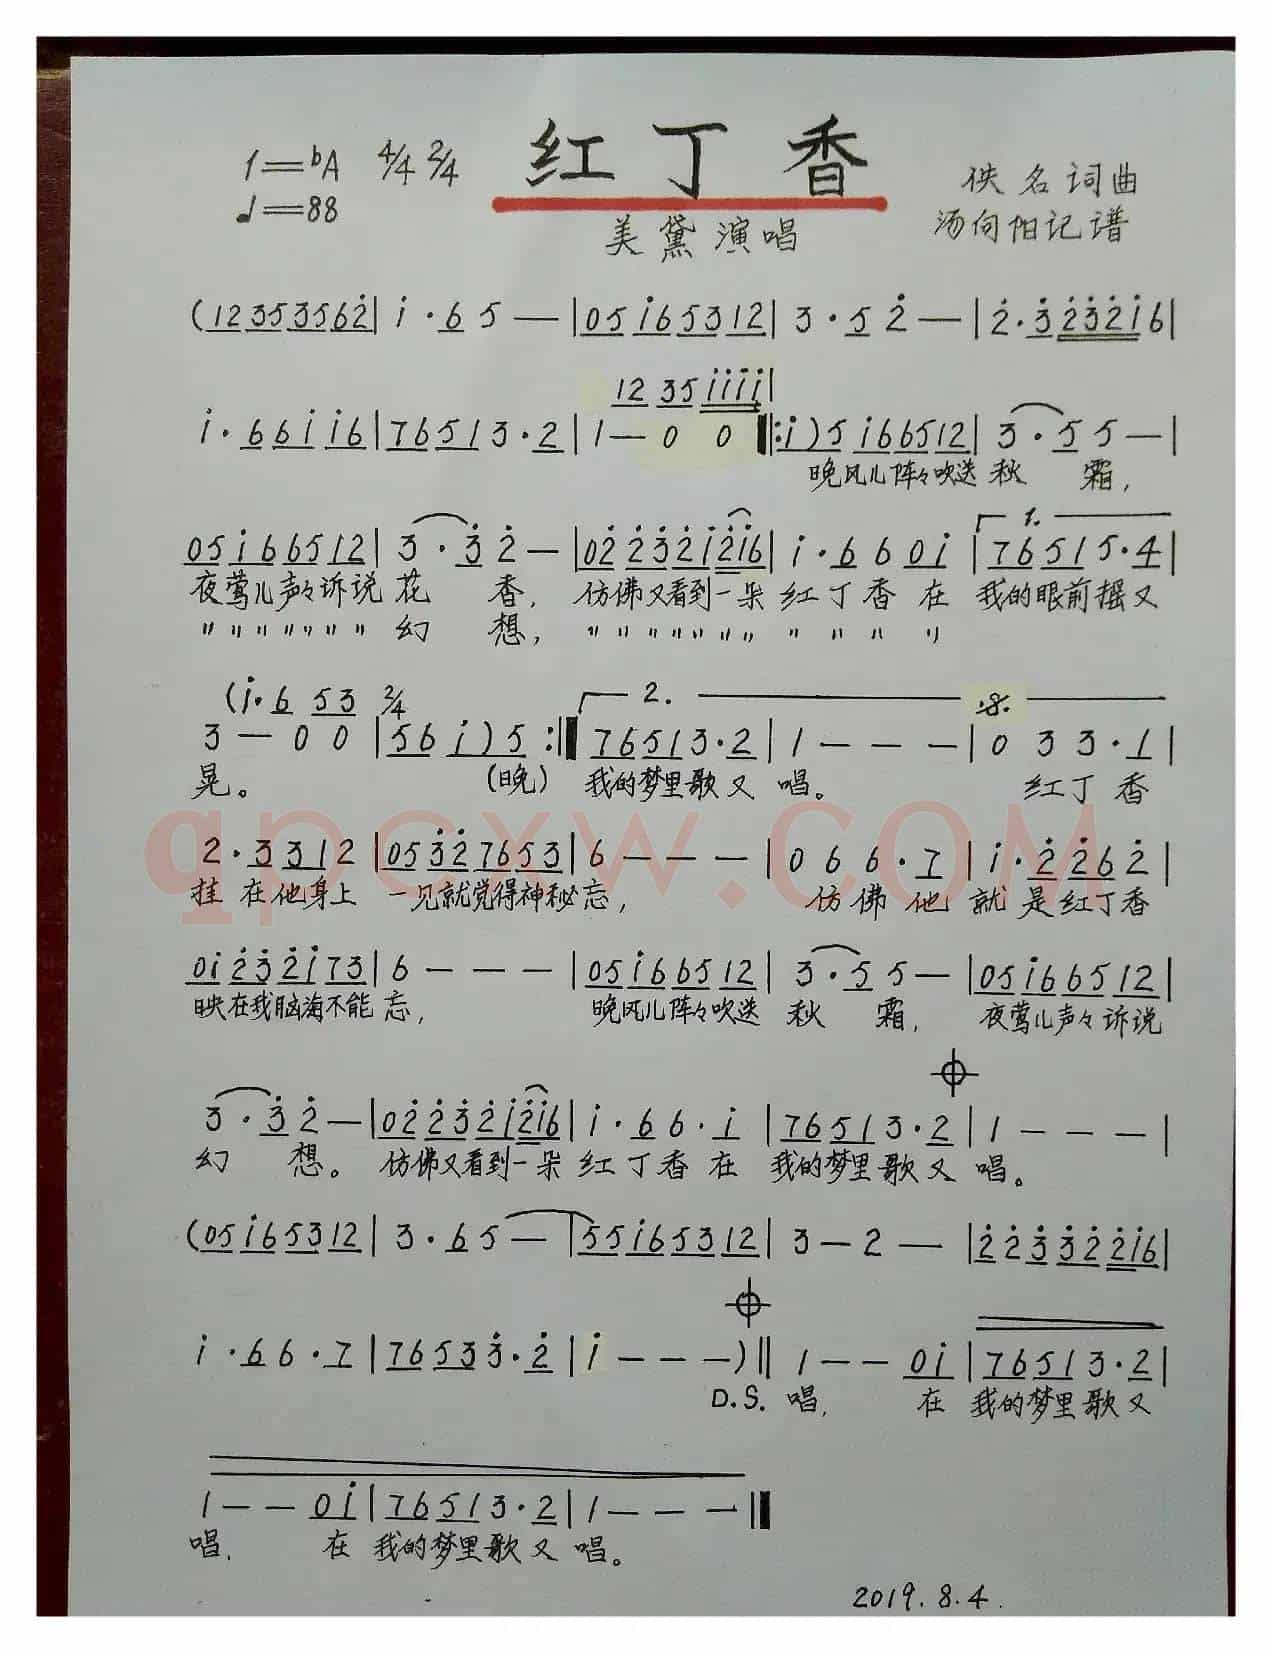 红丁香
1=bA 4/4 2/4
♩=88
佚名词曲
汤向阳记谱
美黛演唱
(12353562̇| 1̇·65—|051̇65312|3·52̇—|2̇·3̇2̇3̇2̇1̇6|
12 35 1̇1̇1̇1̇|
1̇·661̇1̇6|76513·2|1—0 0‖:1̇)51̇66512|3·55—|
晚风儿阵々吹送 秋 霜,
051̇66512|3·3̇2̇—|02̇2̇3̇2̇1̇2̇1̇6|1̇·6601̇|76515·4|
1.
夜莺儿声々诉说 花 香, 仿佛又看到一朵 红丁香 在 我的眼前摇又
〃〃〃〃〃〃〃 幻 想, 〃〃〃〃〃〃〃 〃〃〃 〃
(1̇·6 53 2/4
3—0 0|561̇)5:‖76513·2|1———|0 3 3·1|
2.
晃。 (晚) 我的梦里歌又 唱。 红丁香
2·3312|053̇2̇7653|6———|0 6 6·7|1̇·2̇2̇62̇|
挂 在他身上 一见就觉得神秘忘, 仿佛他 就是红丁香
01̇2̇3̇2̇1̇73|6———|051̇66512|3·55—|051̇66512|
映在我脑海不能忘, 晚风儿阵々吹送 秋 霜, 夜莺儿声々诉说
3·3̇2̇—|02̇2̇3̇2̇1̇2̇1̇6|1̇·66·1̇|76513·2|1———|
幻 想。 仿佛又看到一朵 红丁香在 我的梦里歌又 唱。
(051̇65312|3·65—|551̇65312|3—2—|2̇2̇3̇3̇2̇2̇1̇6|
1̇·66·7|76533̇·2̇|1̇———)‖1——01̇|76513·2|
D.S. 唱, 在 我的梦里歌又
1——01̇|76513·2|1———‖
唱, 在 我的梦里歌又 唱。
2019.8.4.
qpcxw.COM